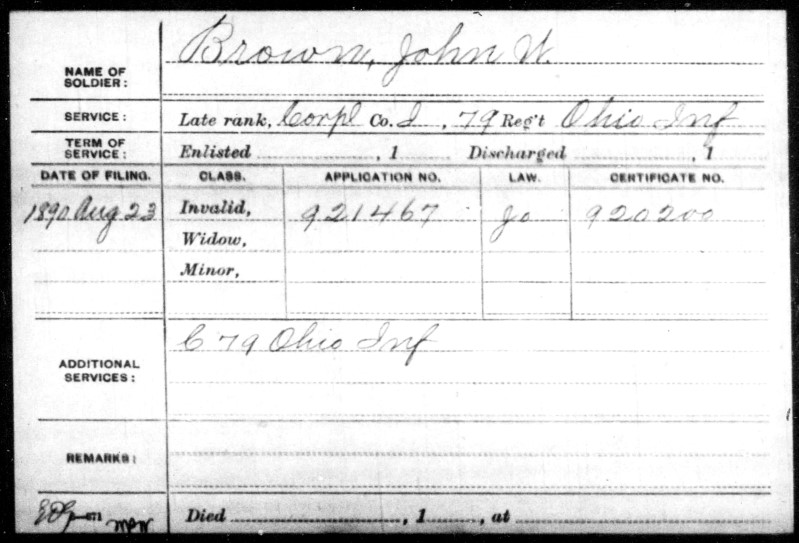 NAME OF SOLDIER: Brown, John W.
SERVICE: Late rank, Corpl Co. I, 79 Reg't Ohio Inf
TERM OF SERVICE: Enlisted , 1 Discharged , 1
DATE OF FILING. CLASS. APPLICATION NO. LAW. CERTIFICATE NO.
1890 Aug 23 Invalid, 921467 920200
Widow,
Minor,
ADDITIONAL SERVICES: C 79 Ohio Inf
REMARKS:
Died , 1 , at